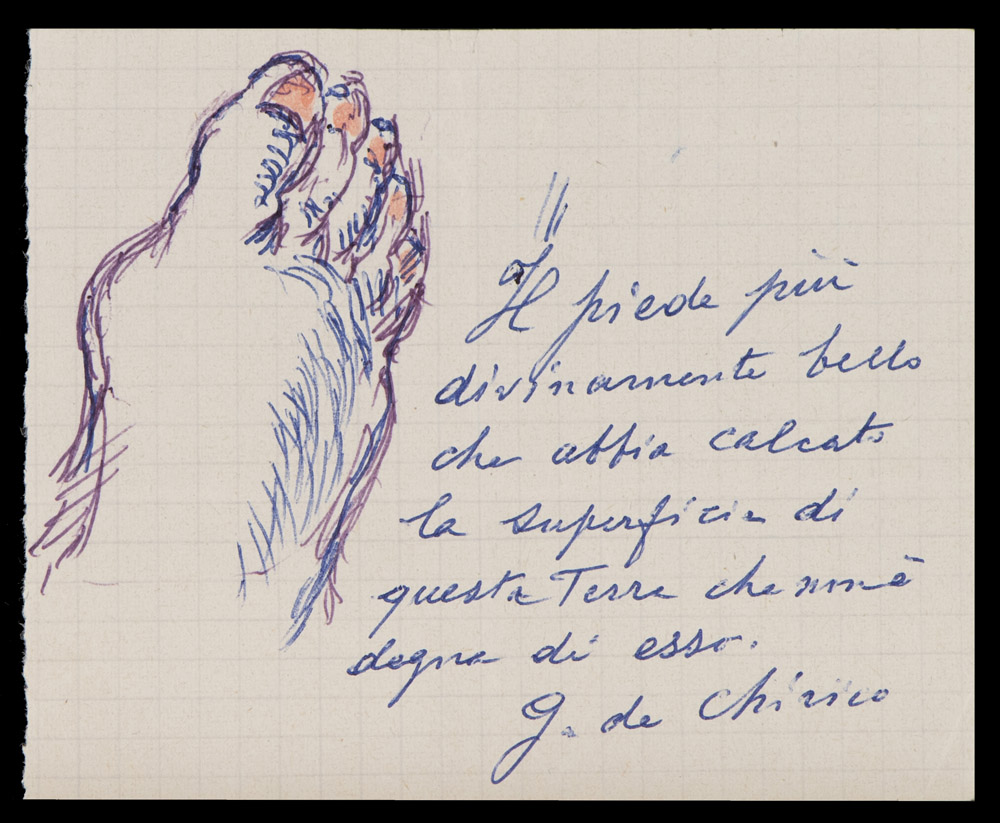 Il piede più
divinamente bello
che abbia calcato
la superficie di
questa Terra che non è
degna di esso.
G. de Chirico